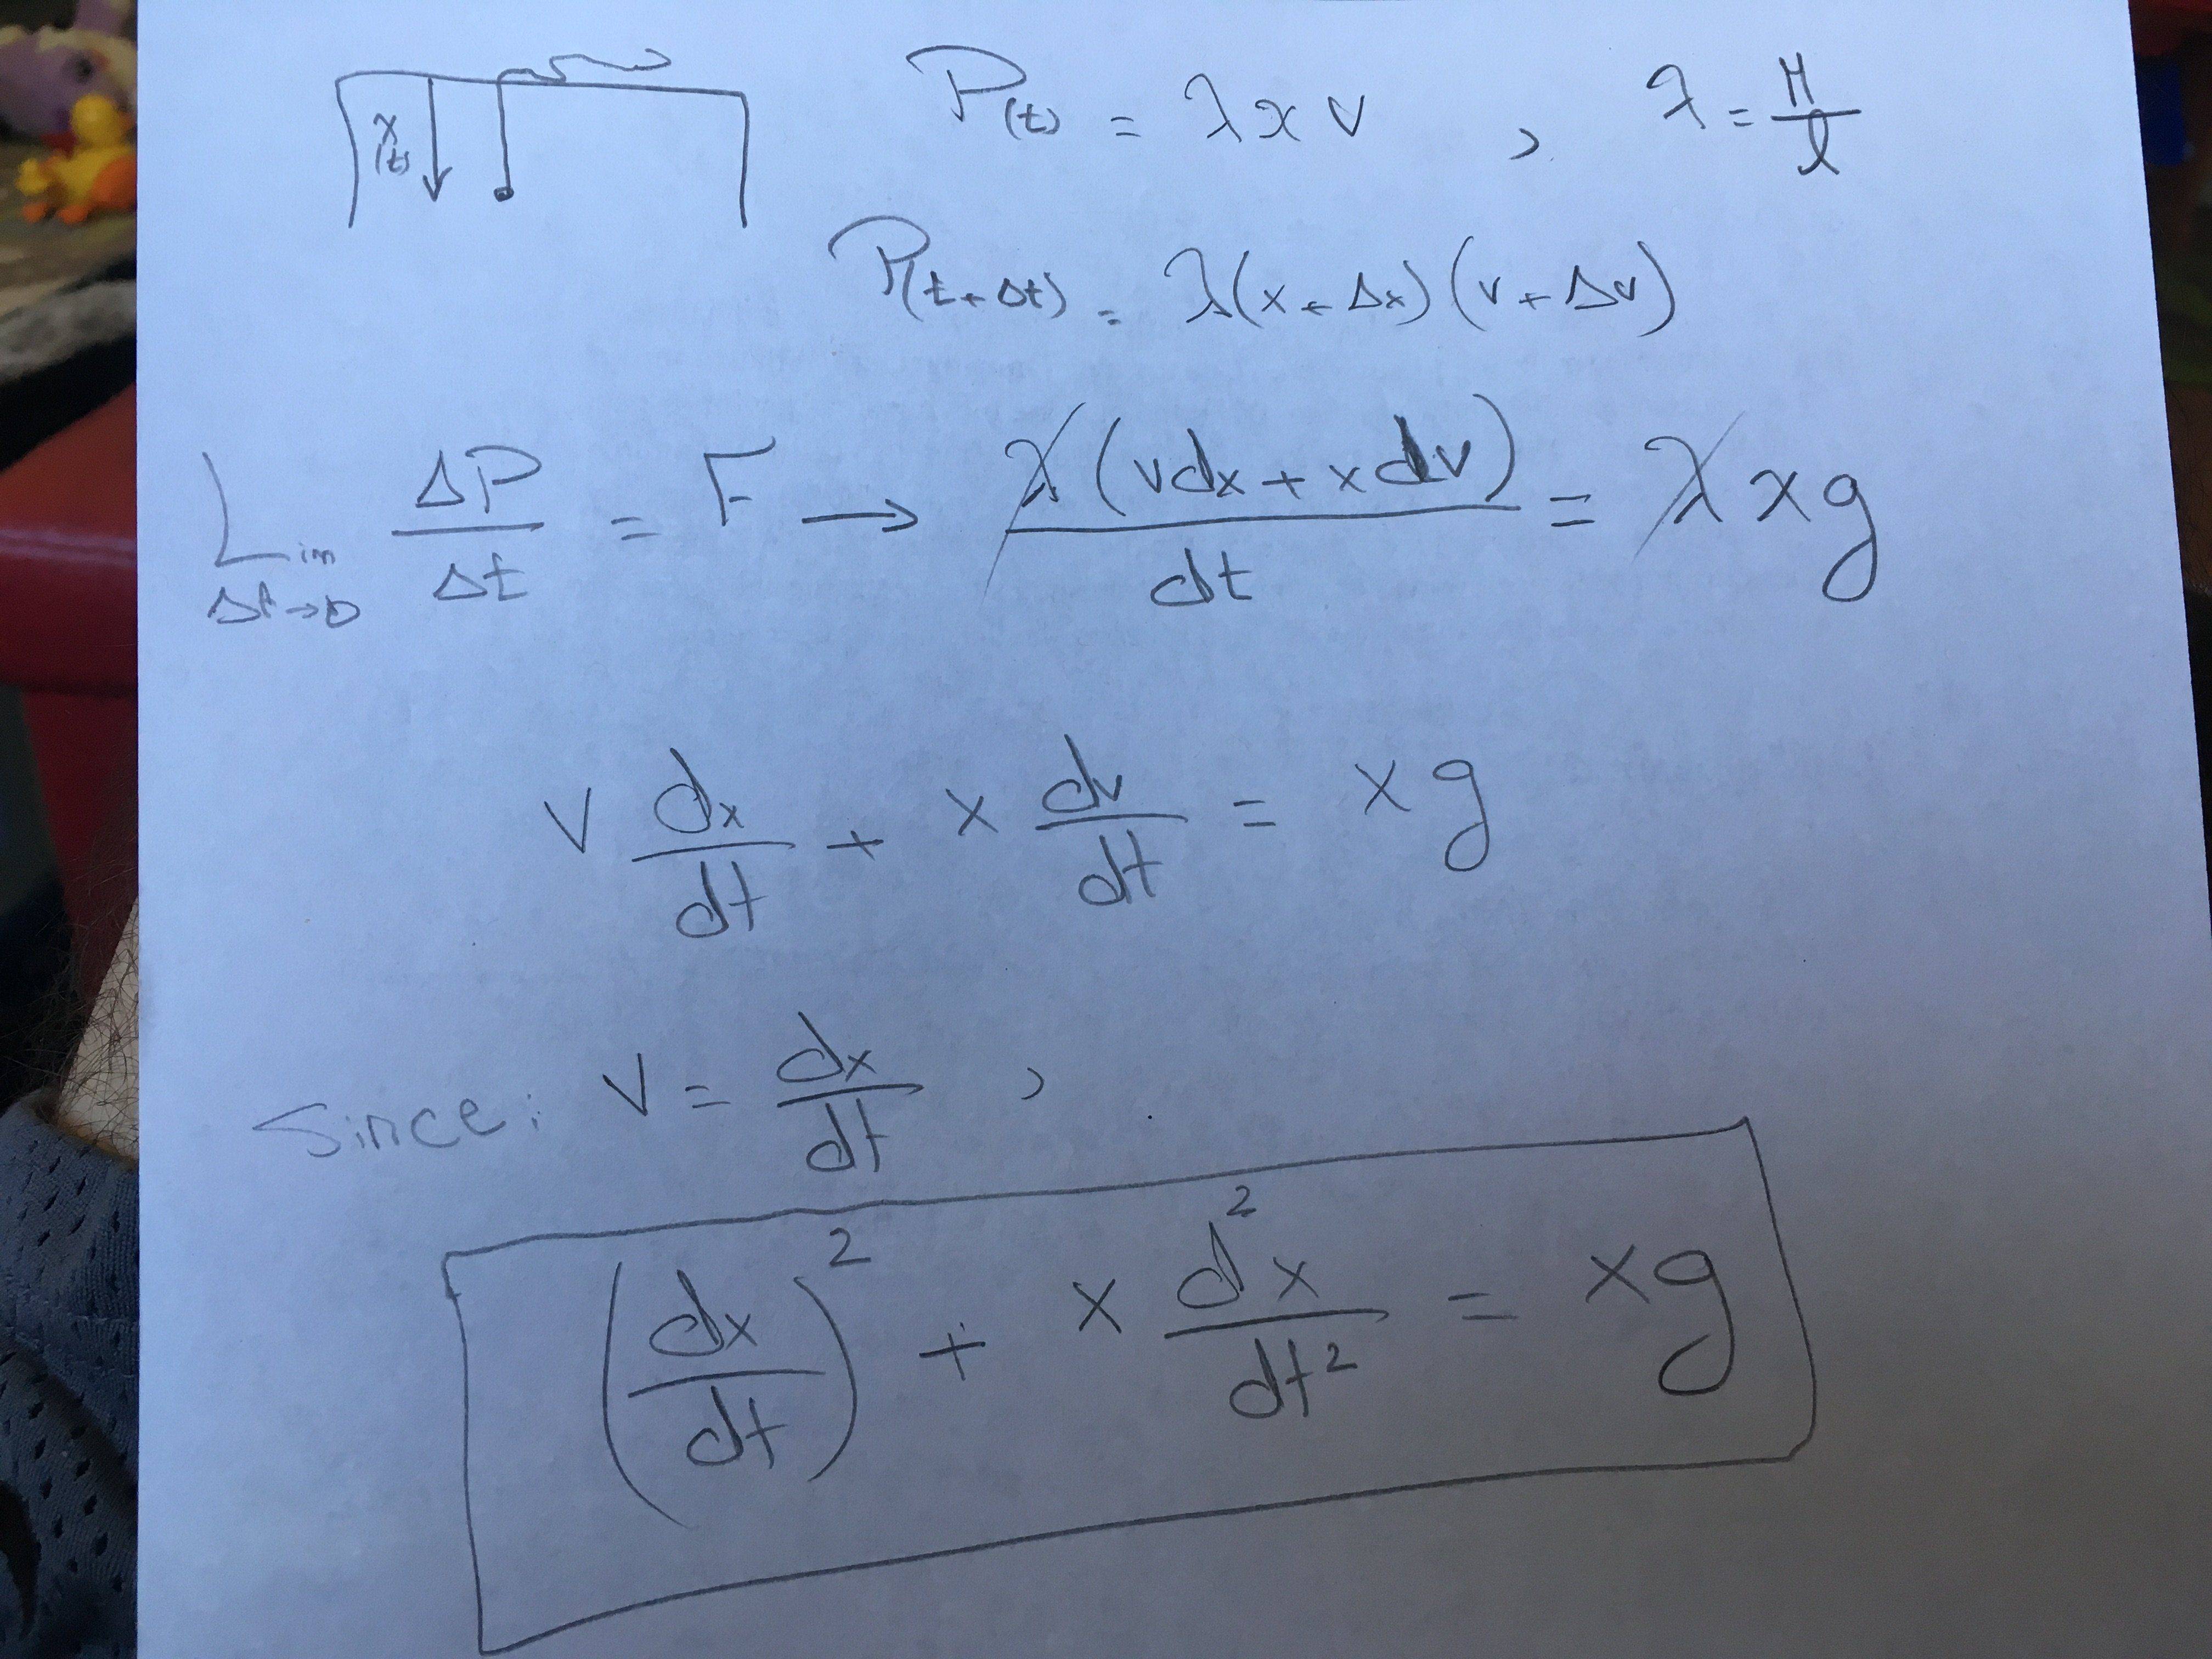 x(t)
P(t) = λ x v , λ = M/l
P(t+Δt) = λ(x+Δx)(v+Δv)
Lim Δt→0 ΔP/Δt = F → λ(vdx + xdv)/dt = λxg
v dx/dt + x dv/dt = xg
Since: v = dx/dt ,
(dx/dt)² + x d²x/dt² = xg